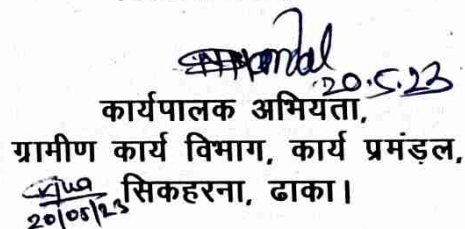 20.5.23
कार्यपालक अभियता,
ग्रामीण कार्य विभाग, कार्य प्रमंड़ल,
सिकहरना, ढाका।
20/05/23